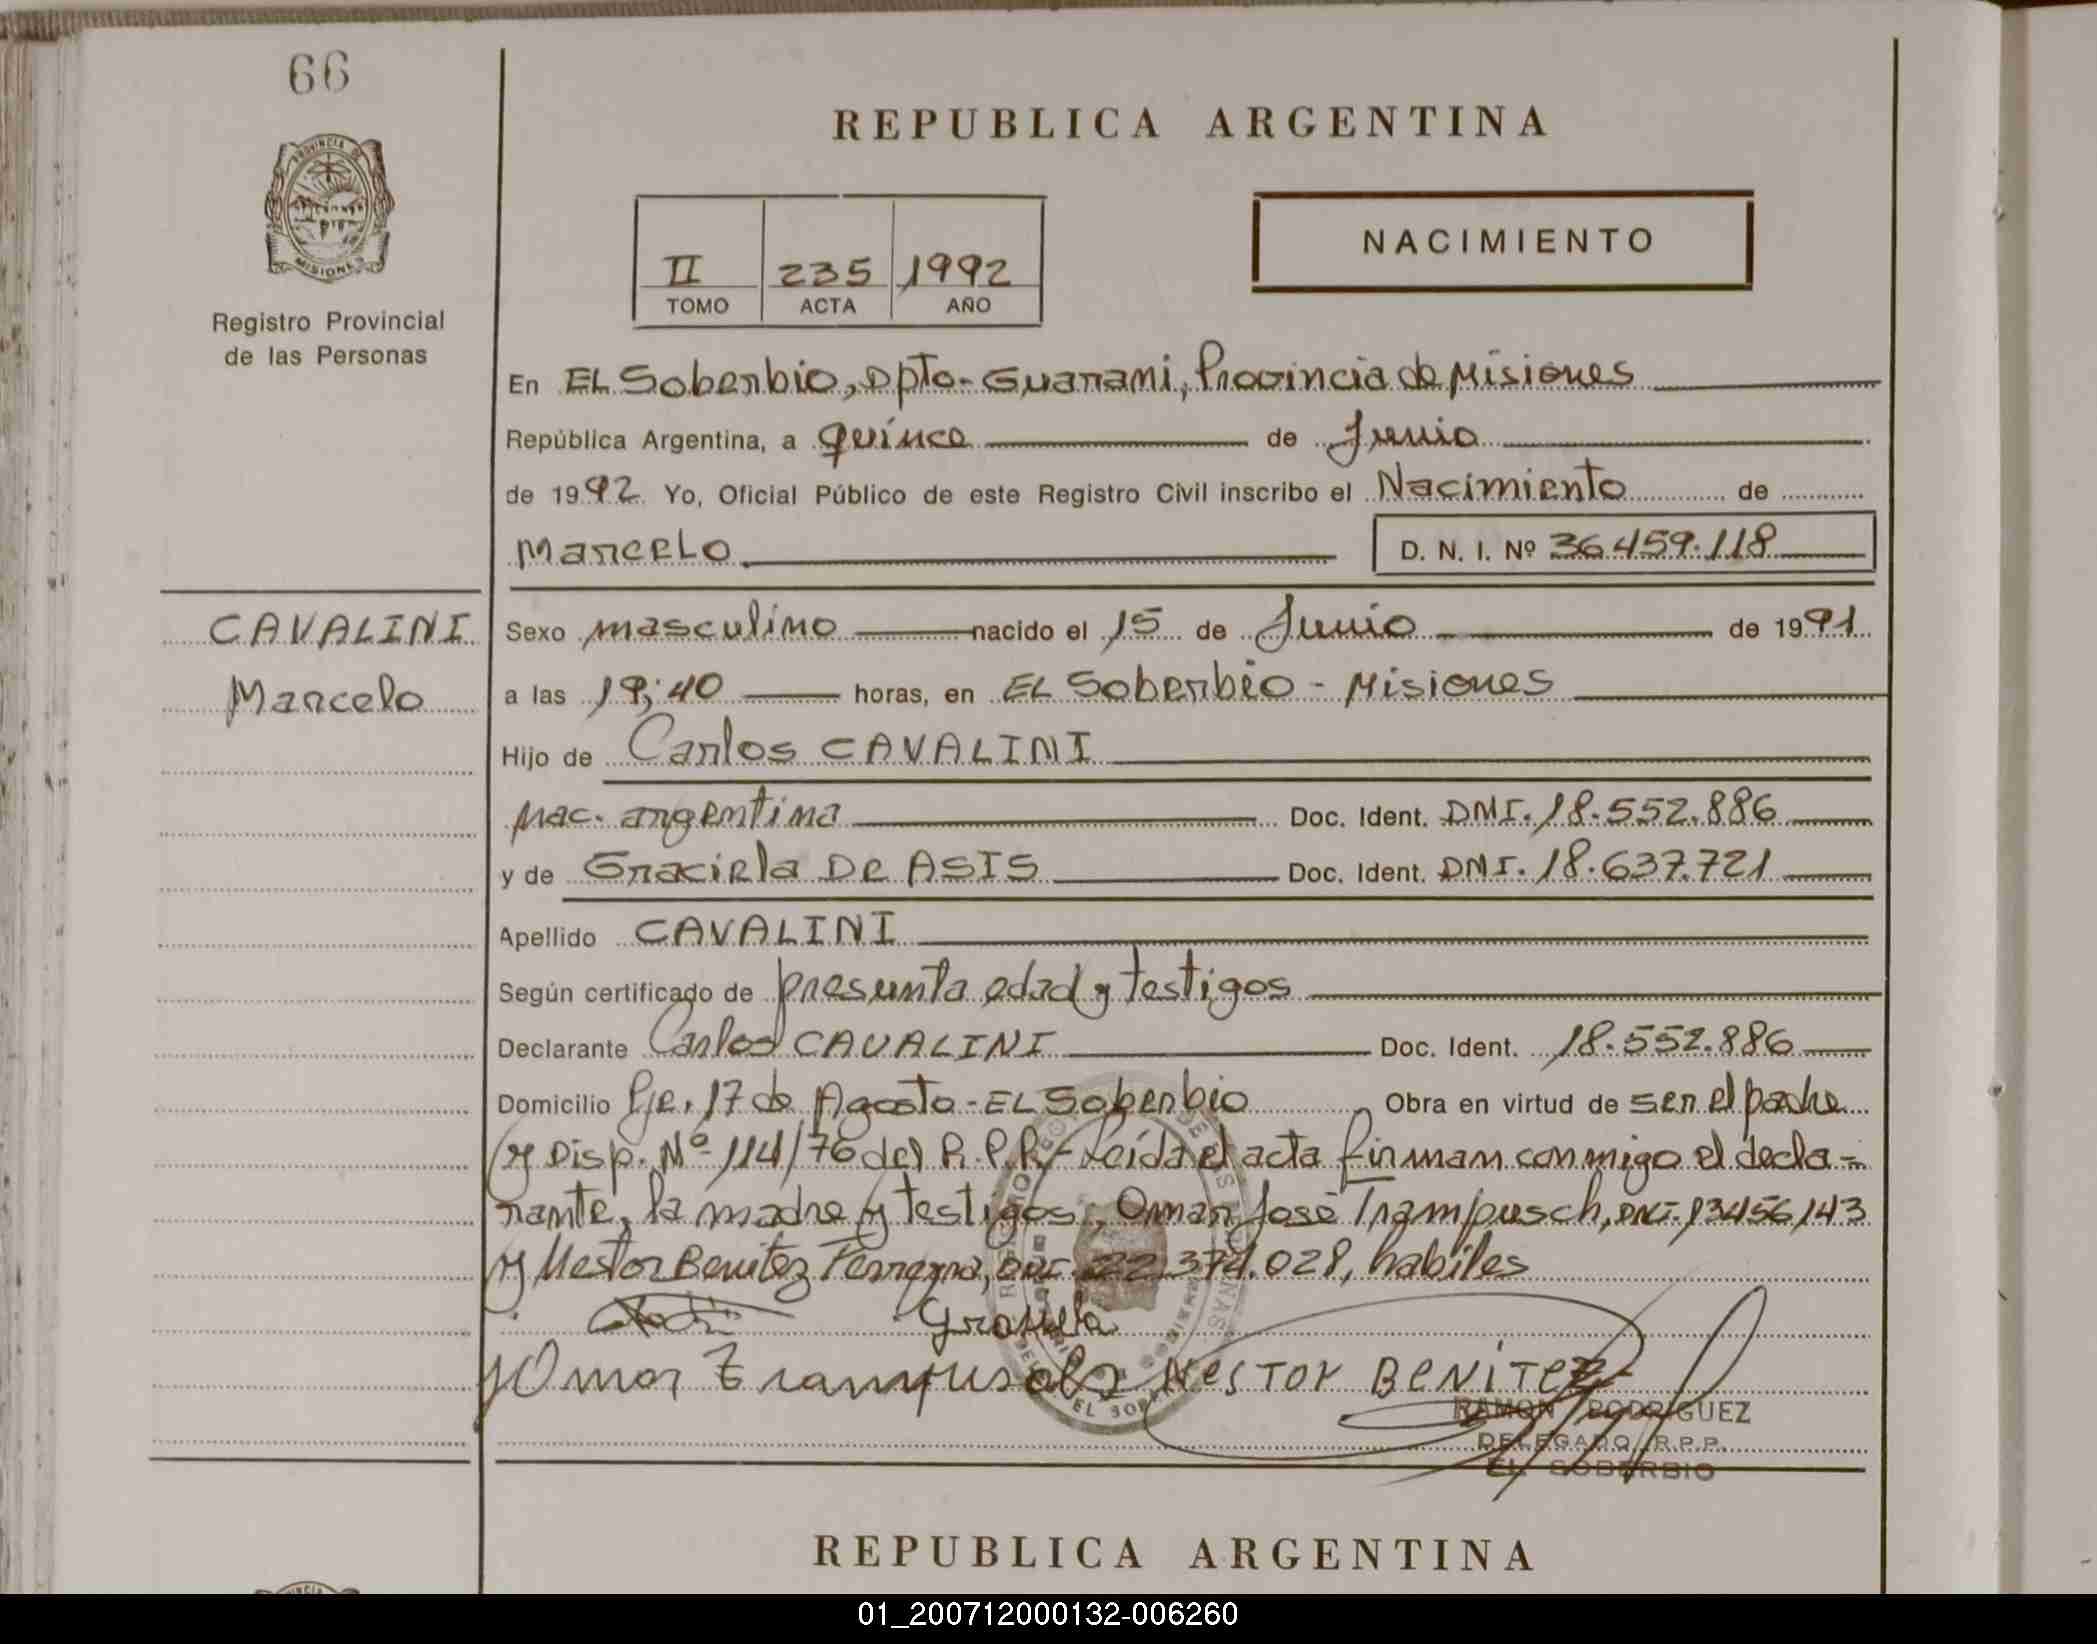 66
REPUBLICA ARGENTINA
PROVINCIA DE
MISIONES
Registro Provincial
de las Personas
II 235 1992
TOMO ACTA AÑO
NACIMIENTO
En EL Soberbio, Dpto- Guarani, Provincia de Misiones
República Argentina, a quince de Junio
de 1992 Yo, Oficial Público de este Registro Civil inscribo el Nacimiento de
Marcelo D. N. I. Nº 36.459.118
CAVALINI
Marcelo
Sexo masculino nacido el 15 de Junio de 1991
a las 19;40 horas, en EL Soberbio - Misiones
Hijo de Carlos CAVALINI
Nac. argentina Doc. Ident. DNI. 18.552.886
y de Graciela De ASIS Doc. Ident. DNI. 18.637.721
Apellido CAVALINI
Según certificado de presunta edad y testigos
Declarante Carlos CAVALINI Doc. Ident. 18.552.886
Domicilio Pje. 17 de Agosto - EL Soberbio Obra en virtud de ser el padre
y Disp. Nº 114/76 del R.P.P.- Leída el acta firman conmigo el decla-
rante, la madre y testigos, Omar José Trampusch, DNI. 13456143
y Nestor Benitez Ferreyra, DNI. 22.374.028, habiles
Graciela
Omar Trampusch NESTOR BENITEZ
RAMON RODRIGUEZ
DELEGADO R.P.P.
EL SOBERBIO
REPUBLICA ARGENTINA
01_200712000132-006260